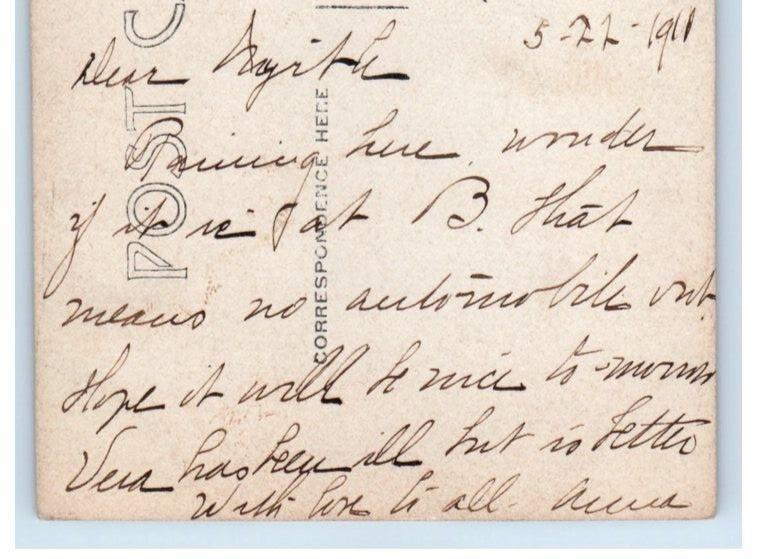 POST C
CORRESPONDENCE HERE
5-22-1911
Dear Myrtle
Raining here, wonder
if it is at B. that
means no automobile out.
Hope it will be nice to-morrow
Vera has been ill but is better
With love to all. Anna